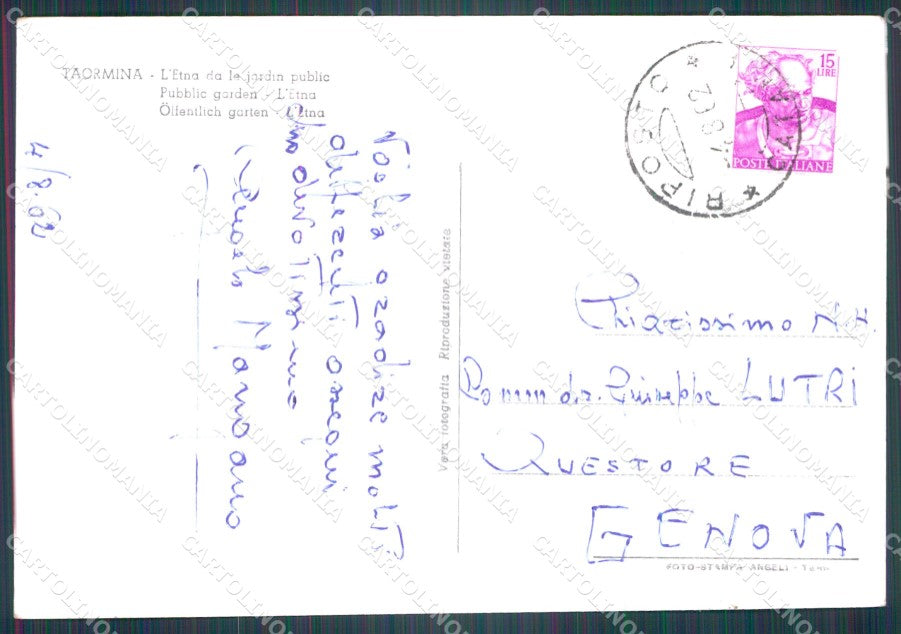 TAORMINA - L'Etna da le jardin public
Pubblic garden - L'Etna
Öffentlich garten - L'Etna
4/8.62
Voglia gradire molti
ossequi
devotissimo
Mariano
Vera fotografia Riproduzione vietata
15
LIRE
POSTE ITALIANE
RIPOSTO
Chiarissimo N.H.
Comm. dr. Giuseppe LUTRI
QUESTORE
GENOVA
FOTO-STAMPA ANGELI - Terni
CARTOLINOMANIA